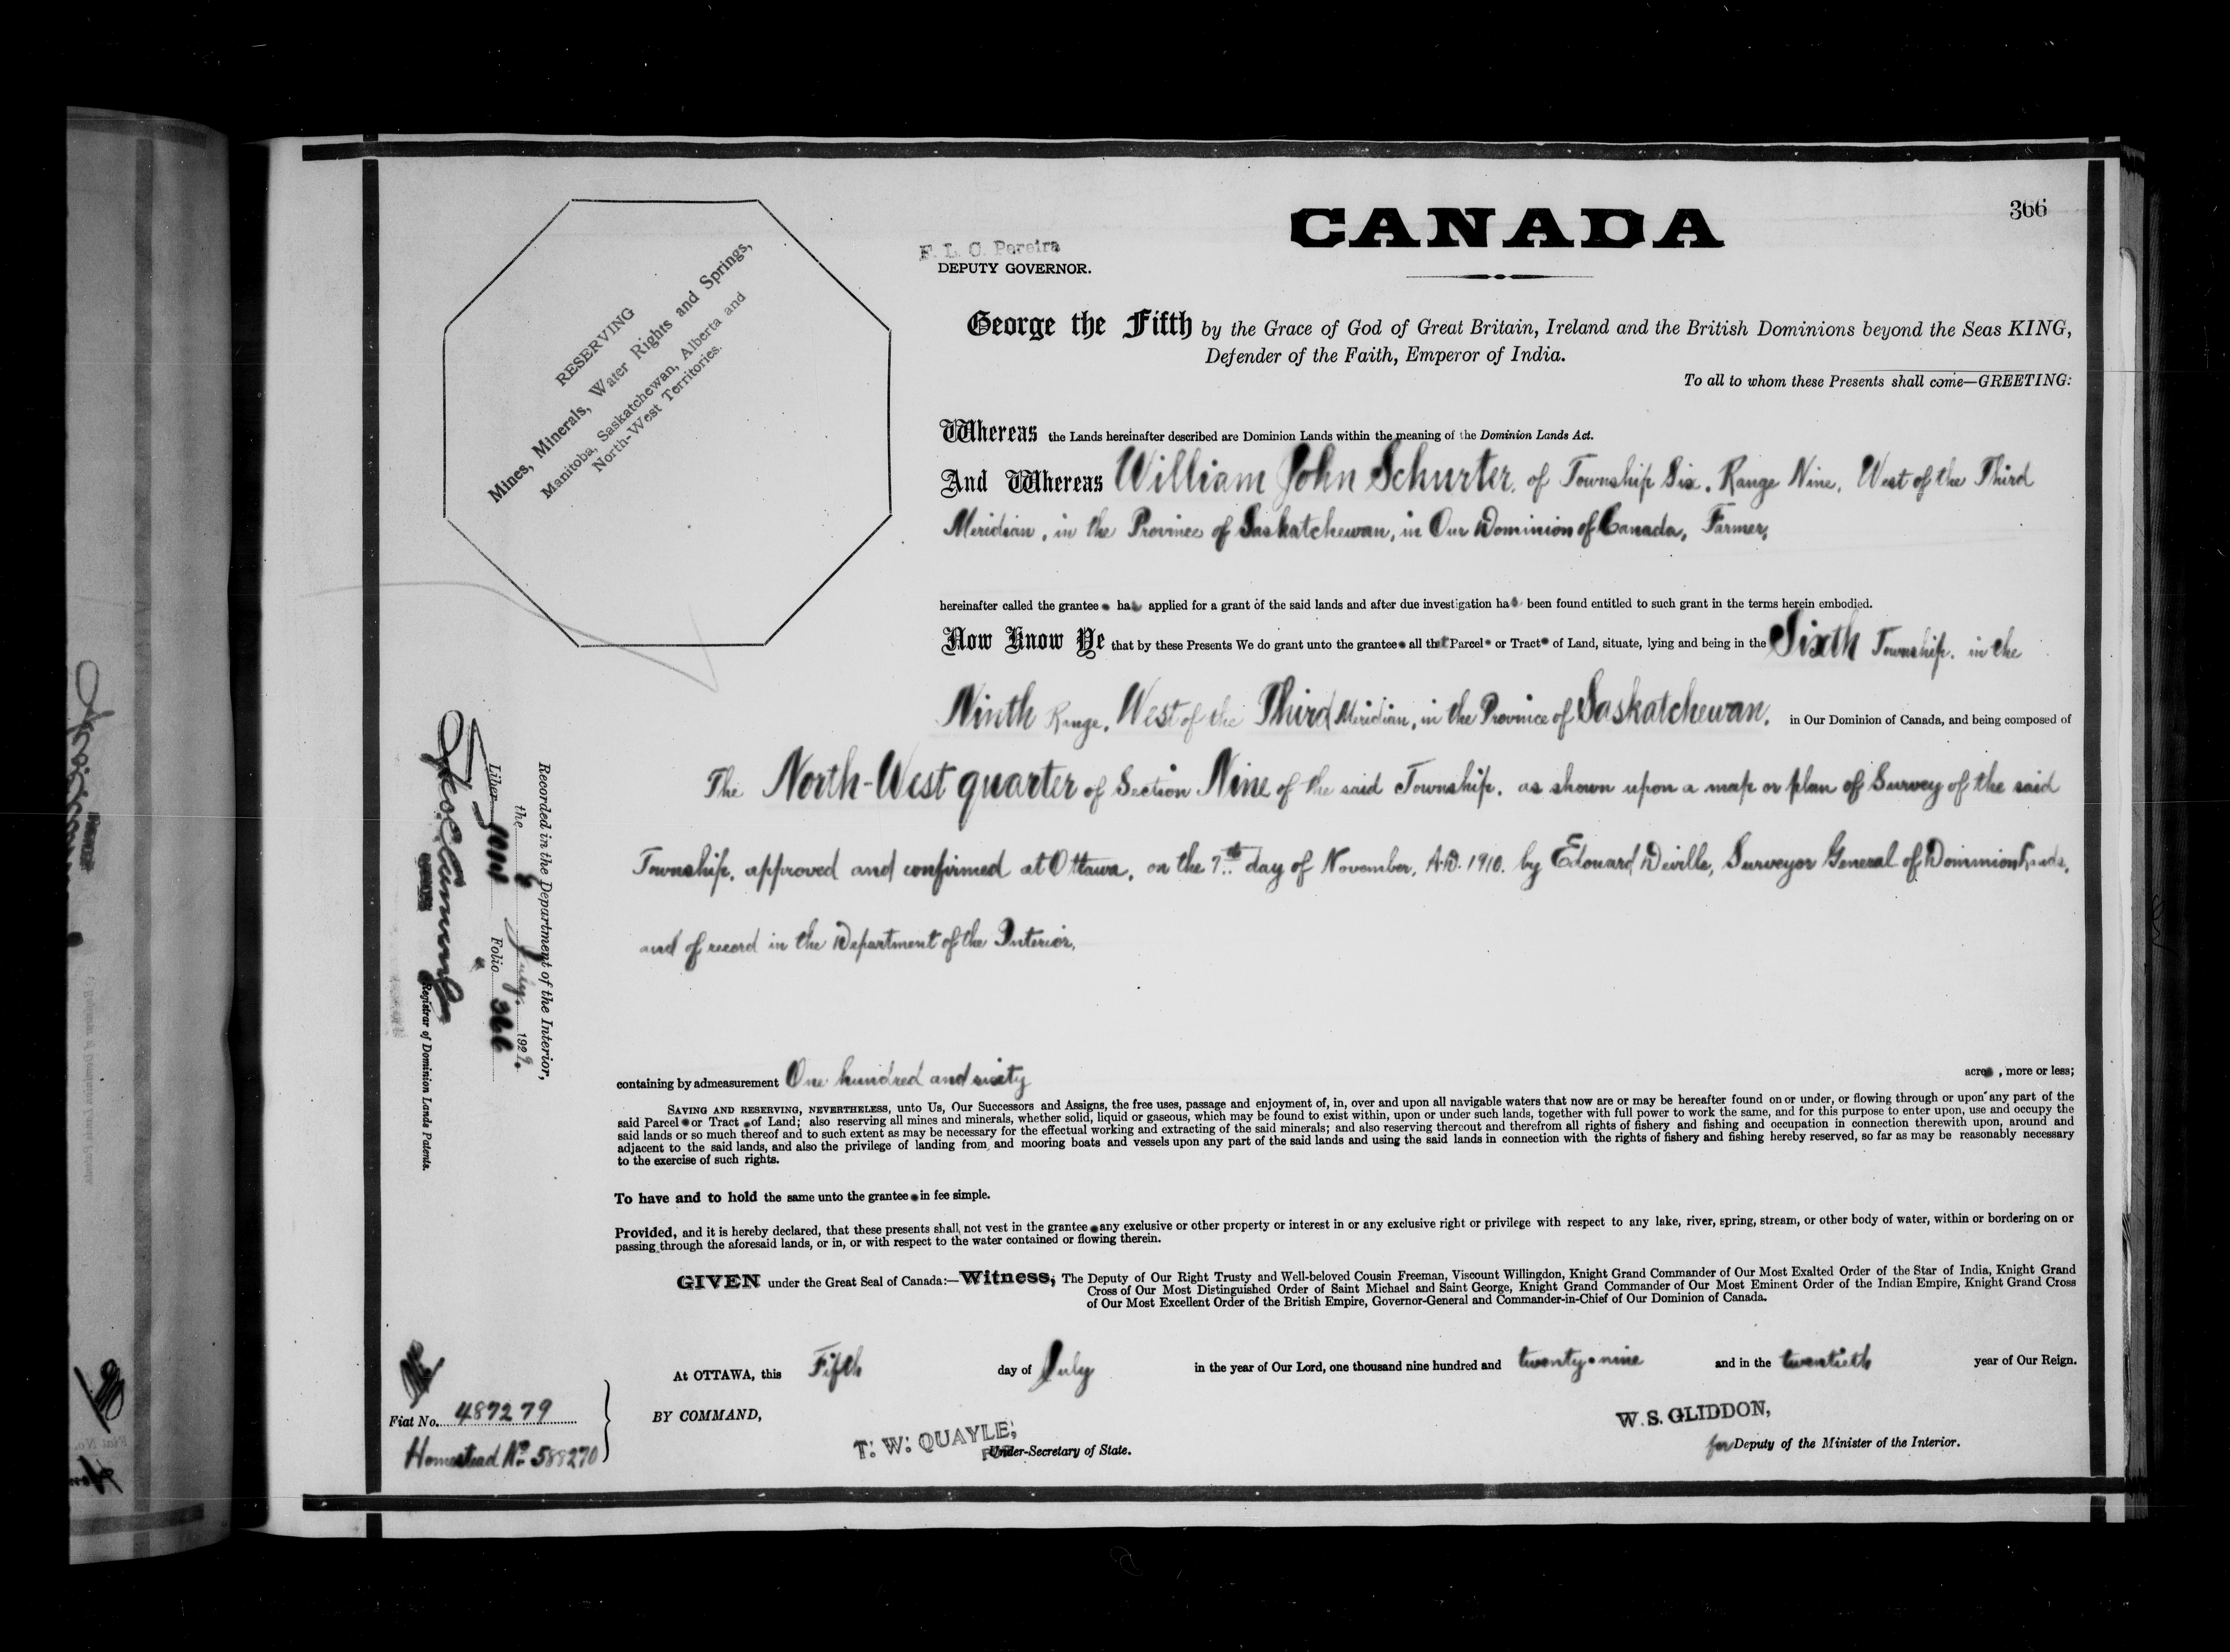 366
CANADA
F. L. C. Pereira
DEPUTY GOVERNOR.
RESERVING
Mines, Minerals, Water Rights and Springs,
Manitoba, Saskatchewan, Alberta and
North-West Territories.
George the Fifth by the Grace of God of Great Britain, Ireland and the British Dominions beyond the Seas KING,
Defender of the Faith, Emperor of India.
To all to whom these Presents shall come—GREETING:
Whereas the Lands hereinafter described are Dominion Lands within the meaning of the Dominion Lands Act.
And Whereas William John Schurter, of Township Six, Range Nine, West of the Third
Meridian, in the Province of Saskatchewan, in Our Dominion of Canada, Farmer,
hereinafter called the grantee has applied for a grant of the said lands and after due investigation has been found entitled to such grant in the terms herein embodied.
Now Know Ye that by these Presents We do grant unto the grantee all that Parcel or Tract of Land, situate, lying and being in the Sixth Township, in the
Ninth Range, West of the Third Meridian, in the Province of Saskatchewan, in Our Dominion of Canada, and being composed of
The North-West quarter of Section Nine of the said Township, as shown upon a map or plan of Survey of the said
Township, approved and confirmed at Ottawa, on the 7th day of November, A.D. 1910. by Edouard Deville, Surveyor General of Dominion Lands,
and of record in the Department of the Interior,
containing by admeasurement One hundred and sixty acres, more or less;
SAVING AND RESERVING, NEVERTHELESS, unto Us, Our Successors and Assigns, the free uses, passage and enjoyment of, in, over and upon all navigable waters that now are or may be hereafter found on or under, or flowing through or upon any part of the
said Parcel or Tract of Land; also reserving all mines and minerals, whether solid, liquid or gaseous, which may be found to exist within, upon or under such lands, together with full power to work the same, and for this purpose to enter upon, use and occupy the
said lands or so much thereof and to such extent as may be necessary for the effectual working and extracting of the said minerals; and also reserving thereout and therefrom all rights of fishery and fishing and occupation in connection therewith upon, around and
adjacent to the said lands, and also the privilege of landing from and mooring boats and vessels upon any part of the said lands and using the said lands in connection with the rights of fishery and fishing hereby reserved, so far as may be reasonably necessary
to the exercise of such rights.
To have and to hold the same unto the grantee in fee simple.
Provided, and it is hereby declared, that these presents shall not vest in the grantee any exclusive or other property or interest in or any exclusive right or privilege with respect to any lake, river, spring, stream, or other body of water, within or bordering on or
passing through the aforesaid lands, or in, or with respect to the water contained or flowing therein.
GIVEN under the Great Seal of Canada:—Witness, The Deputy of Our Right Trusty and Well-beloved Cousin Freeman, Viscount Willingdon, Knight Grand Commander of Our Most Exalted Order of the Star of India, Knight Grand
Cross of Our Most Distinguished Order of Saint Michael and Saint George, Knight Grand Commander of Our Most Eminent Order of the Indian Empire, Knight Grand Cross
of Our Most Excellent Order of the British Empire, Governor-General and Commander-in-Chief of Our Dominion of Canada.
At OTTAWA, this Fifth day of July in the year of Our Lord, one thousand nine hundred and twenty-nine and in the twentieth year of Our Reign.
BY COMMAND,
T. W. QUAYLE,
Under-Secretary of State.
W. S. GLIDDON,
for Deputy of the Minister of the Interior.
Fiat No. 487279
Homestead No. 588270
Recorded in the Department of the Interior,
the July, 1929.
Liber Folio 366
Registrar of Dominion Lands Patents.